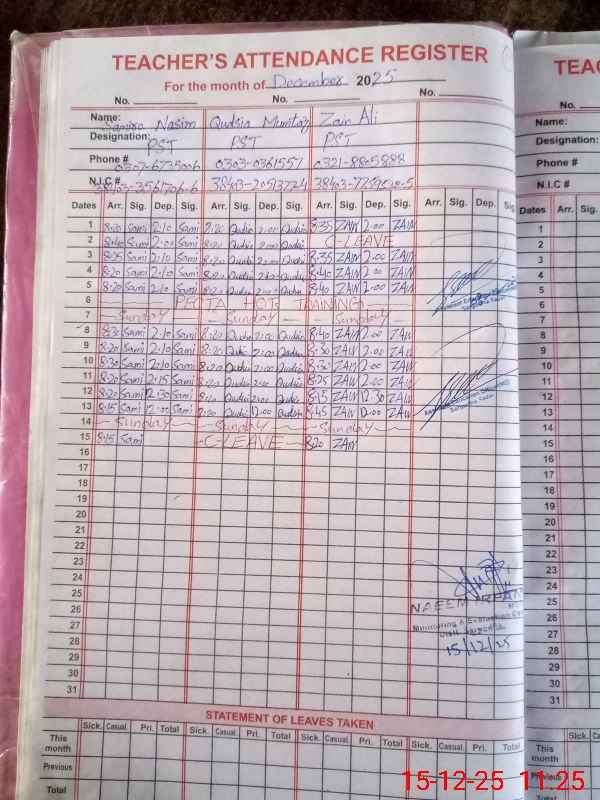 TEACHER'S ATTENDANCE REGISTER
For the month of December 2025
No. No. No.
Name: Samina Nasim Qudsia Mumtaz Zain Ali
Designation: PST PST PST
Phone # 0303-0361557 0321-8805888
N.I.C#
Dates Arr. Sig. Dep. Sig. Arr. Sig. Dep. Sig. Arr. Sig. Dep. Sig. Arr. Sig. Dep. Sig.
1 8:20 Sami 2:10 Sami 8:20 Qudsi 2:00 Qudsi 8:35 ZAIN 2:00 ZAIN
2 8:40 Sami 2:00 Sami 8:20 Qudsi 2:00 Qudsi C-LEAVE
3 8:25 Sami 2:10 Sami 8:20 Qudsi 2:00 Qudsi 8:35 ZAIN 2:00 ZAIN
4 8:20 Sami 2:10 Sami 8:20 Qudsi 2:00 Qudsi 8:40 ZAIN 2:00 ZAIN
5 8:20 Sami 2:10 Sami 8:20 Qudsi 2:00 Qudsi 8:40 ZAIN 2:00 ZAIN
6 PECTA HOT TRAINING
7 Sunday Sunday Sunday
8 8:30 Sami 2:10 Sami 8:20 Qudsi 2:00 Qudsi 8:40 ZAIN 2:00 ZAIN
9 8:20 Sami 2:10 Sami 8:20 Qudsi 2:00 Qudsi 8:30 ZAIN 2:00 ZAIN
10 8:30 Sami 2:10 Sami 8:20 Qudsi 2:00 Qudsi 8:30 ZAIN 2:00 ZAIN
11 8:20 Sami 2:15 Sami 8:20 Qudsi 2:00 Qudsi 8:25 ZAIN 2:00 ZAIN
12 8:20 Sami 12:30 Sami 8:20 Qudsi Qudsi 8:15 ZAIN 12:30 ZAIN
13 8:15 Sami 12:00 Sami 8:20 Qudsi 12:00 Qudsi 8:45 ZAIN 12:00 ZAIN
14 Sunday Sunday Sunday
15 8:15 Sami C-LEAVE 8:20 ZAIN
16
17
18
19
20
21
22
23
24
25
26 NAEEM
27 Monitoring & Evaluation
28
29 15/12/25
30
31
STATEMENT OF LEAVES TAKEN
Sick. Casual. Pri. Total Sick. Casual. Pri. Total Sick. Casual. Pri. Total Sick. Casual. Pri. Total
This month
Previous
Total
TEAC
No.
Name:
Designation:
Phone #
N.I.C #
Dates Arr. Sig.
1
2
3
4
5
6
7
8
9
10
11
12
13
14
15
16
17
18
19
20
21
22
23
24
25
26
27
28
29
30
31
Sick. Casual.
This month
Previous
Total
15-12-25 11:25